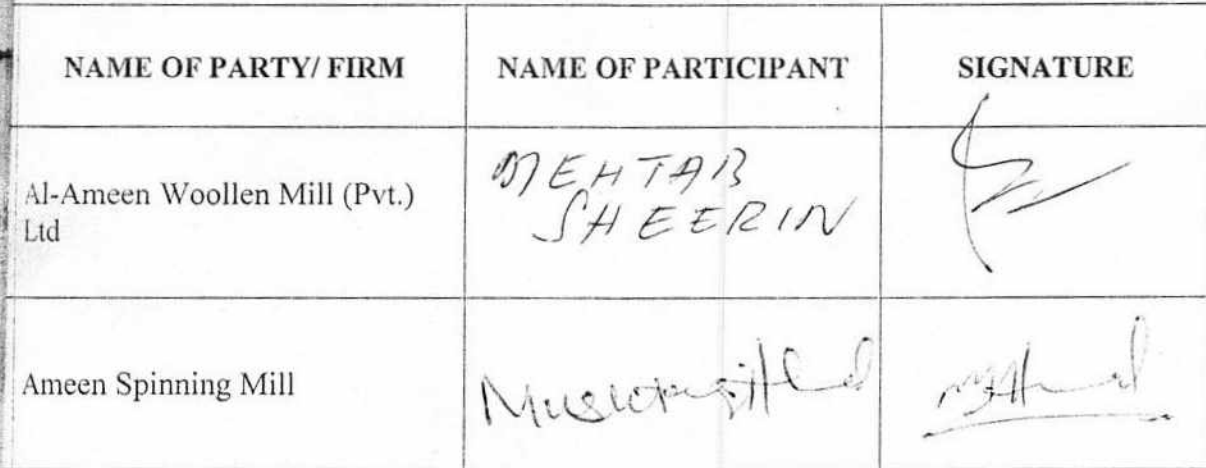 NAME OF PARTY/ FIRM NAME OF PARTICIPANT SIGNATURE
Al-Ameen Woollen Mill (Pvt.) MEHTAB
Ltd SHEERIN
Ameen Spinning Mill